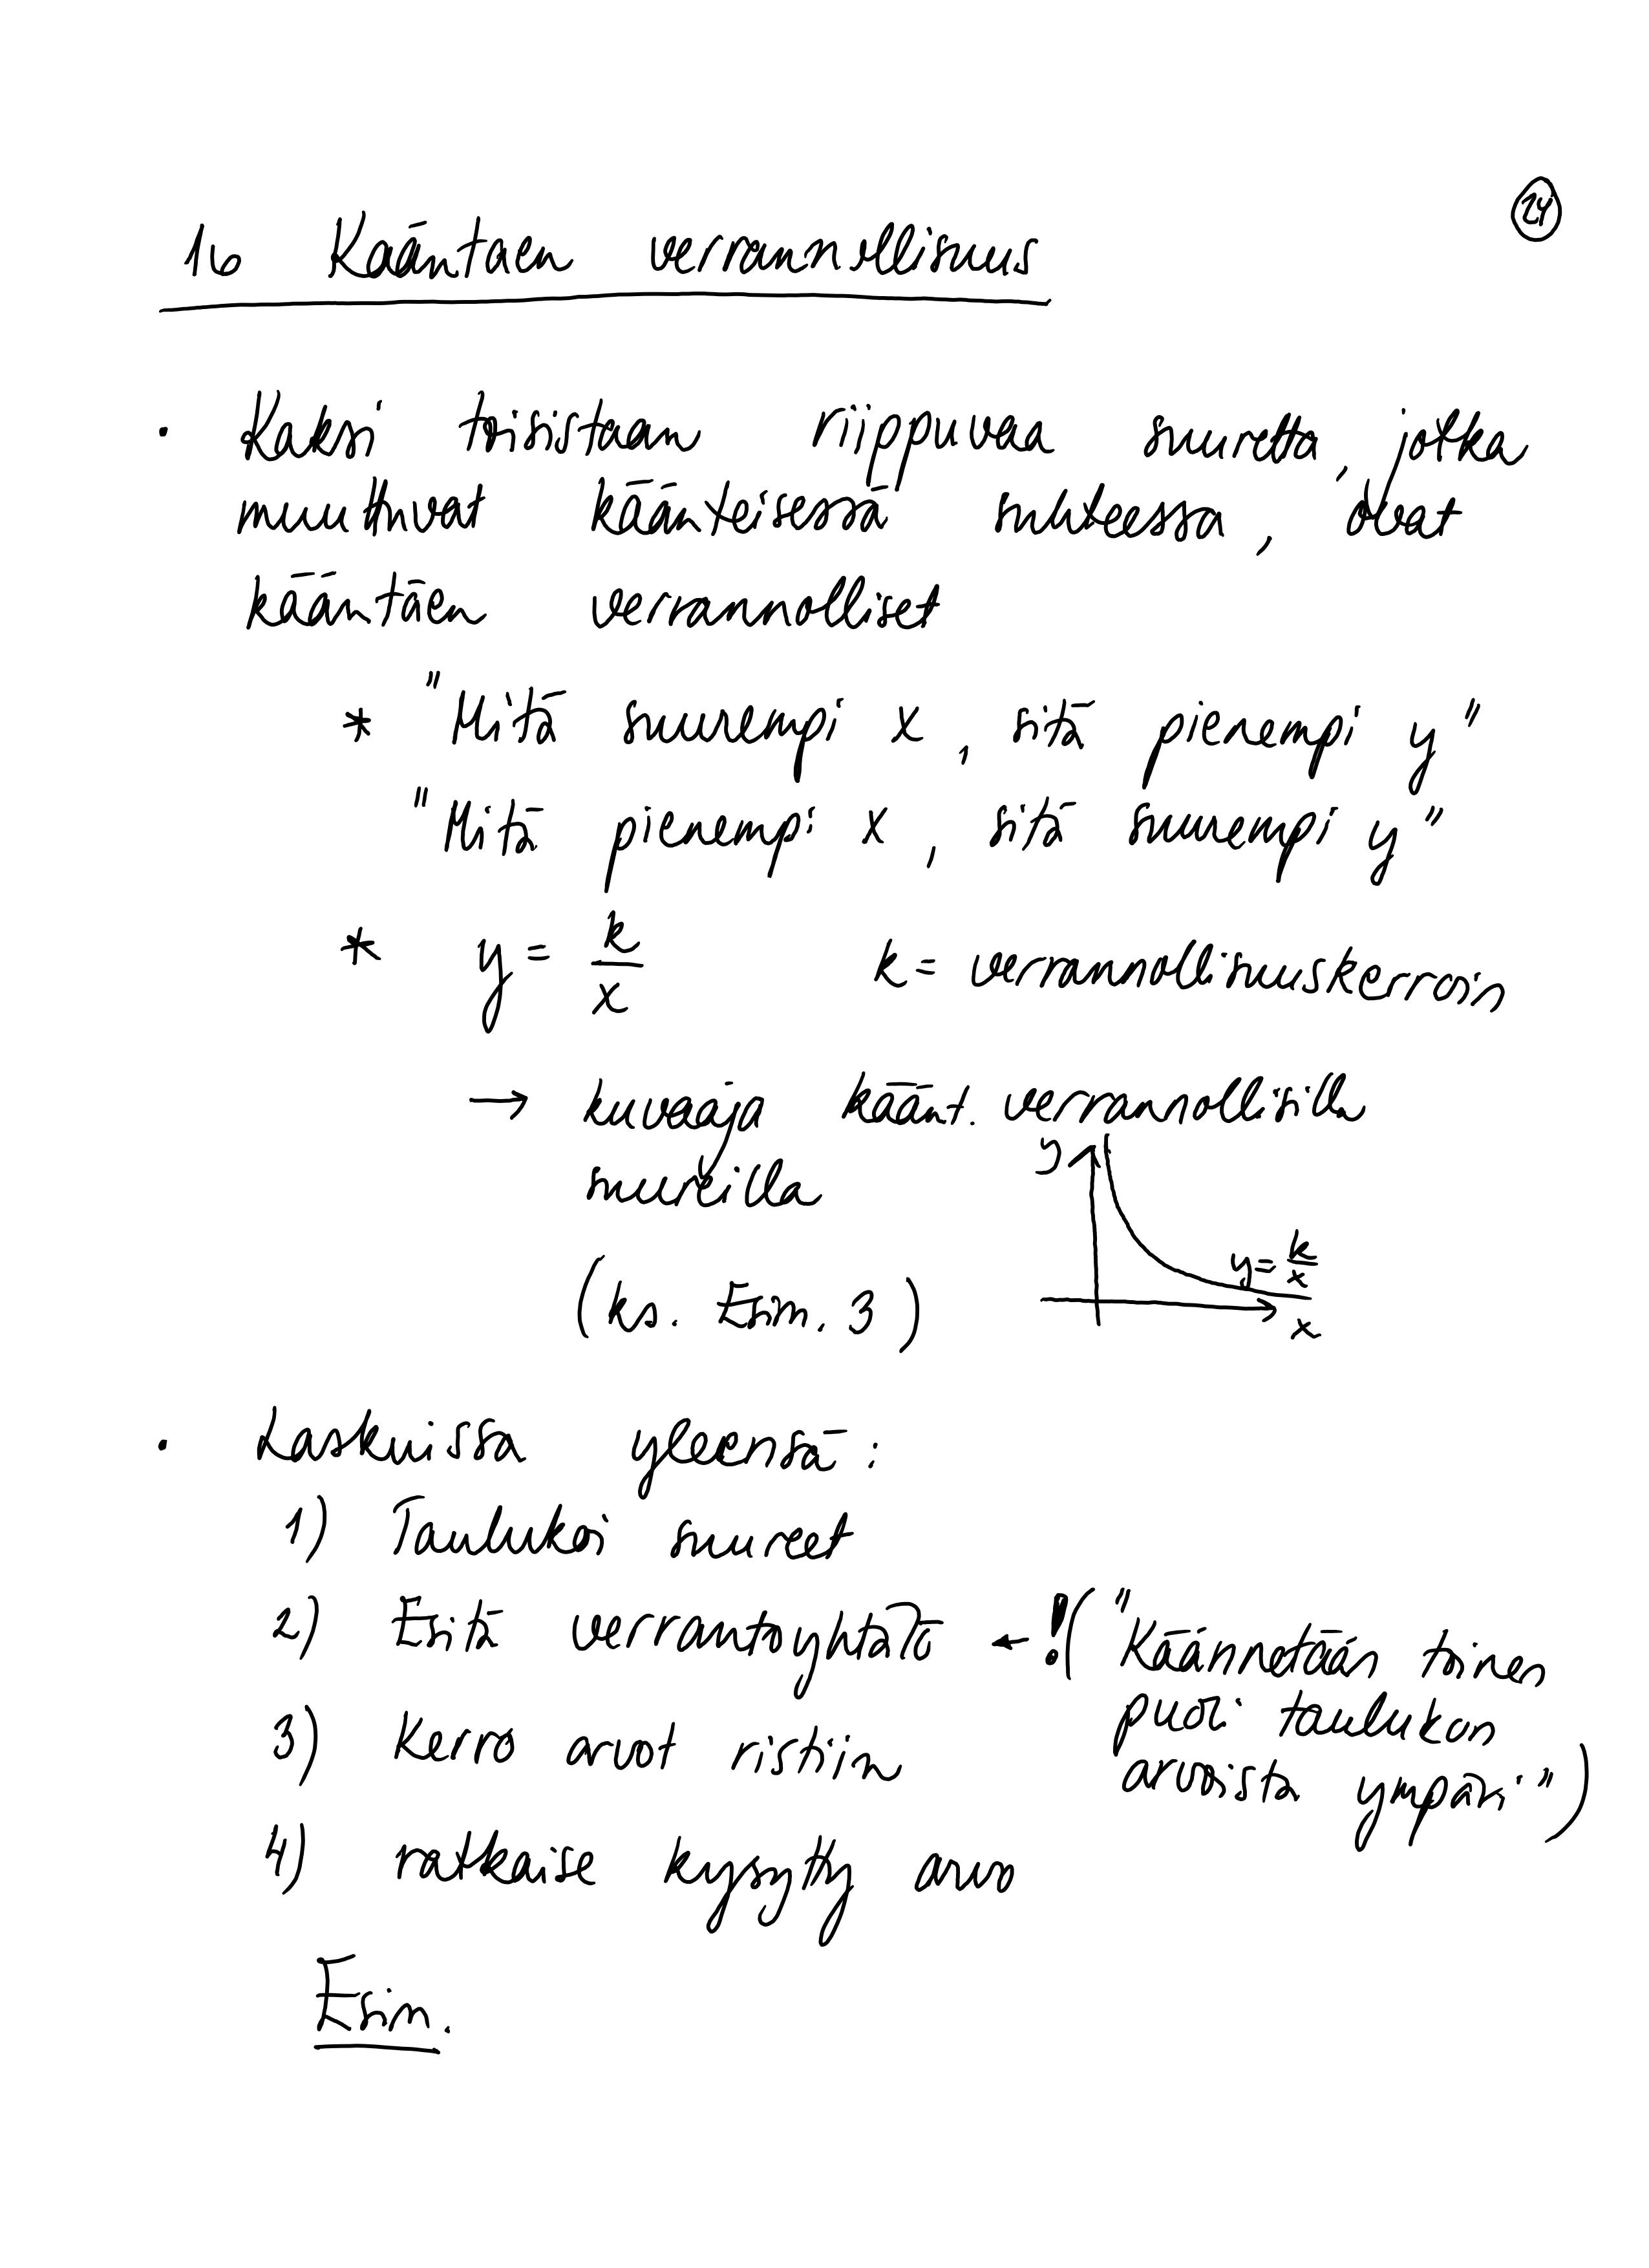 24
16 Kääntäen verrannollisuus
• Kaksi toisistaan riippuvaa suuretta, jotka
muuttuvat käänteisessä suhteessa, ovat
kääntäen verrannolliset
* "Mitä suurempi x, sitä pienempi y"
"Mitä pienempi x, sitä suurempi y"
* y = k/x k = verrannollisuuskerroin
→ kuvaaja käänt. verrannollisilla
suureilla
y
y = k/x
x
(ks. Esim. 3)
• Laskuissa yleensä:
1) Taulukoi suureet
2) Esitä verrantoyhtälö ← ! ("Käännetään toinen
puoli taulukon
arvoista ympäri")
3) Kerro arvot ristiin
4) ratkaise kysytty arvo
Esim.